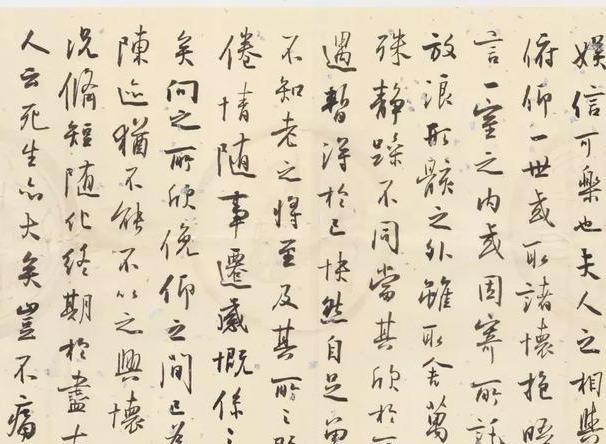 娛信可樂也夫人之相與
俯仰一世或取諸懷抱晤
言一室之内或因寄所託
放浪形骸之外雖取舍萬
殊静躁不同當其欣於
遇暫得於己快然自足
不知老之將至及其所之
倦情随事遷感慨係之
矣向之所欣俛仰之間已為
陳迹猶不能不以之興懷
況脩短随化終期於盡古
人云死生亦大矣豈不痛